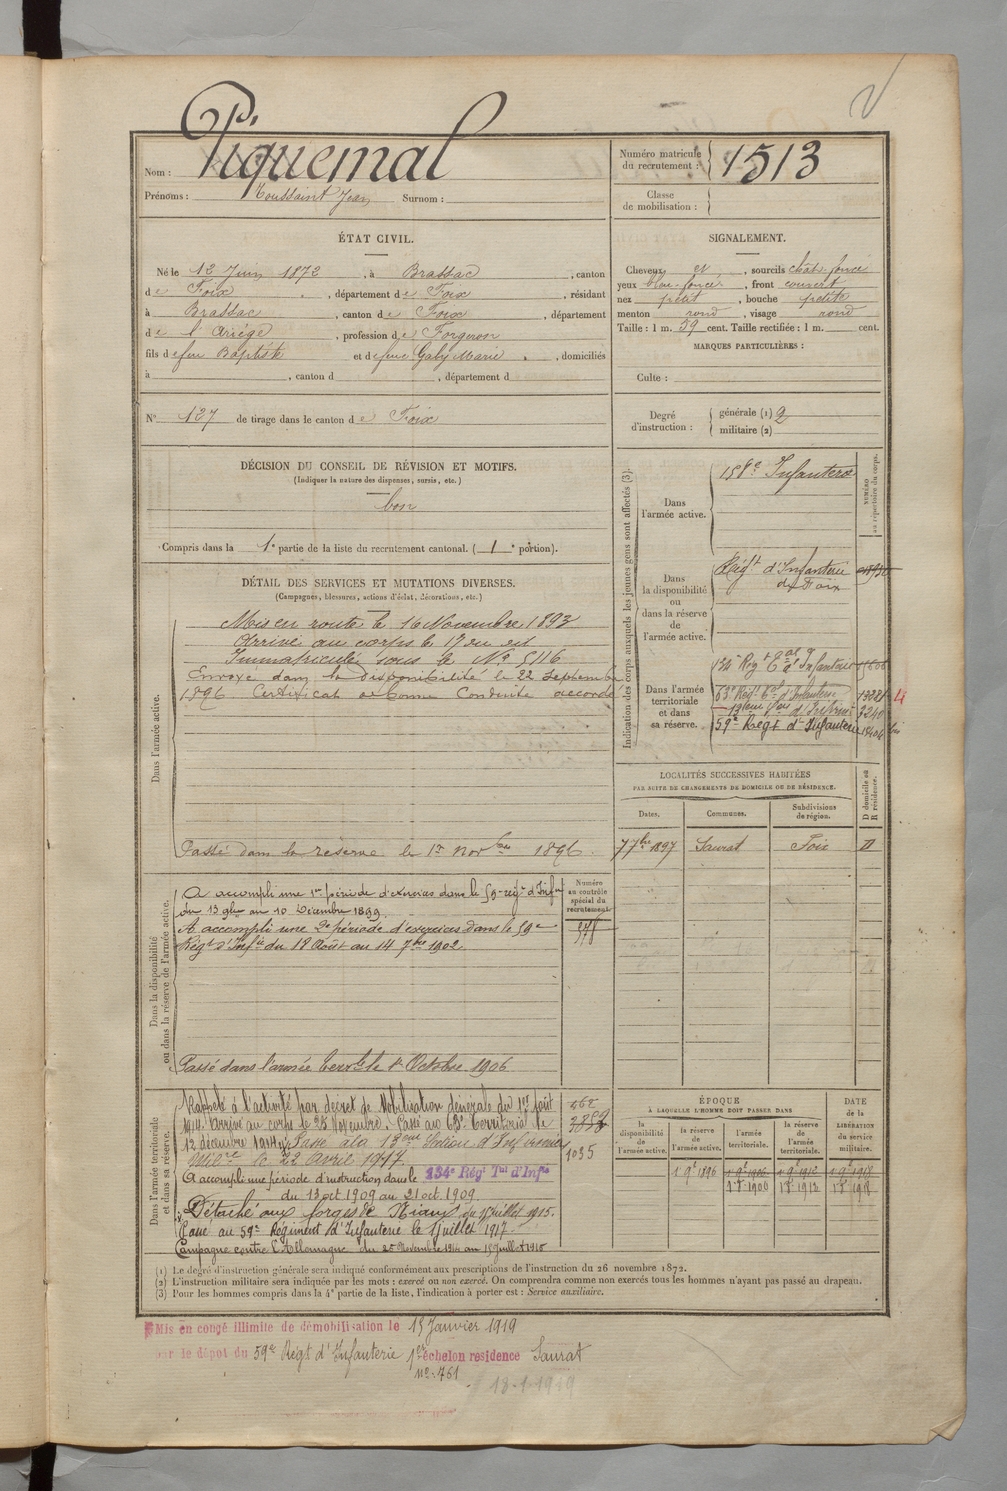 Nom : Piquemal
Prénoms : Toussaint Jean Surnom :
Numéro matricule du recrutement : 1513
Classe de mobilisation :
ÉTAT CIVIL.
Né le 12 Juin 1872, à Brassac, canton
de Foix, département de Foix, résidant
à Brassac, canton de Foix, département
de l'Ariège, profession de Forgeron
fils de feu Baptiste et de feue Gaby Marie, domiciliés
à , canton d , département d
SIGNALEMENT.
Cheveux et , sourcils chât. foncé
yeux bleu foncé, front couvert
nez petit, bouche petite
menton rond, visage rond
Taille : 1 m. 59 cent. Taille rectifiée : 1 m. cent.
MARQUES PARTICULIÈRES :
Culte :
N° 127 de tirage dans le canton de Foix
Degré d'instruction : générale (1) 2
militaire (2)
DÉCISION DU CONSEIL DE RÉVISION ET MOTIFS.
(Indiquer la nature des dispenses, sursis, etc.)
bon
Compris dans la 1e partie de la liste du recrutement cantonal. (1e portion).
DÉTAIL DES SERVICES ET MUTATIONS DIVERSES.
(Campagnes, blessures, actions d'éclat, décorations, etc.)
Dans l'armée active.
Mis en route le 16 Novembre 1893
Arrivé au corps le 17 du dit
Immatriculé sous le N° 5116
Envoyé dans la disponibilité le 22 Septembre
1896. Certificat de bonne Conduite accordé
Passé dans la réserve le 1er Novbre 1896.
Dans la disponibilité ou dans la réserve de l'armée active.
A accompli une 1re période d'exercices dans le 59e régt d'Infie
du 13 9bre au 10 Décembre 1899.
A accompli une 2e période d'exercices dans le 59e
Régt d'Infie du 18 Août au 14 7bre 1902.
Passé dans l'armée terrle le 1er Octobre 1906
Numéro au contrôle spécial du recrutement
378
Dans l'armée territoriale et dans sa réserve.
Rappelé à l'activité par décret de Mobilisation générale du 1er août
1914. Arrivé au corps le 25 Novembre. Passé au 63e Territorial le
12 décembre 1914. Passé à la 13eme Section d'Infirmiers
Milres le 22 Avril 1917.
A accompli une période d'instruction dans le 134e Régt Tal d'Infie
du 13 oct 1909 au 21 oct. 1909.
Détaché aux forges de Niaux du 15 Juillet 1915.
Passé au 59e Régiment d'Infanterie le 1 juillet 1917
Campagne contre l'Allemagne du 25 Novembre 1914 au 15 Juillet 1915
1035
Indication des corps auxquels les jeunes gens sont affectés (3).
NUMÉRO au répertoire du corps.
Dans l'armée active.
158e Infanterie
Dans la disponibilité ou dans la réserve de l'armée active.
Régt d'Infanterie de Foix
Dans l'armée territoriale et dans sa réserve.
134e Régt Tal d'Infanterie
63e Régt Tal d'Infanterie
13eme Son d'Infirmiers
59e Régt d'Infanterie
LOCALITÉS SUCCESSIVES HABITÉES
PAR SUITE DE CHANGEMENTS DE DOMICILE OU DE RÉSIDENCE.
Dates. Communes. Subdivisions de région. D domicile ou R résidence.
7 7bre 1897 Saurat Foix D
ÉPOQUE
À LAQUELLE L'HOMME DOIT PASSER DANS
DATE de la LIBÉRATION du service militaire.
la disponibilité de l'armée active. la réserve de l'armée active. l'armée territoriale. la réserve de l'armée territoriale.
1 9bre 1896 1 9bre 1906 1 9bre 1912 1 9bre 1918
1 8bre 1906 1 8bre 1912 1 8bre 1918
(1) Le degré d'instruction générale sera indiqué conformément aux prescriptions de l'instruction du 26 novembre 1872.
(2) L'instruction militaire sera indiquée par les mots : exercé ou non exercé. On comprendra comme non exercés tous les hommes n'ayant pas passé au drapeau.
(3) Pour les hommes compris dans la 4e partie de la liste, l'indication à porter est : Service auxiliaire.
Mis en congé illimité de démobilisation le 15 Janvier 1919
par le dépôt du 59e Régt d'Infanterie 1er échelon residence Saurat
no. 761
18-1-1919